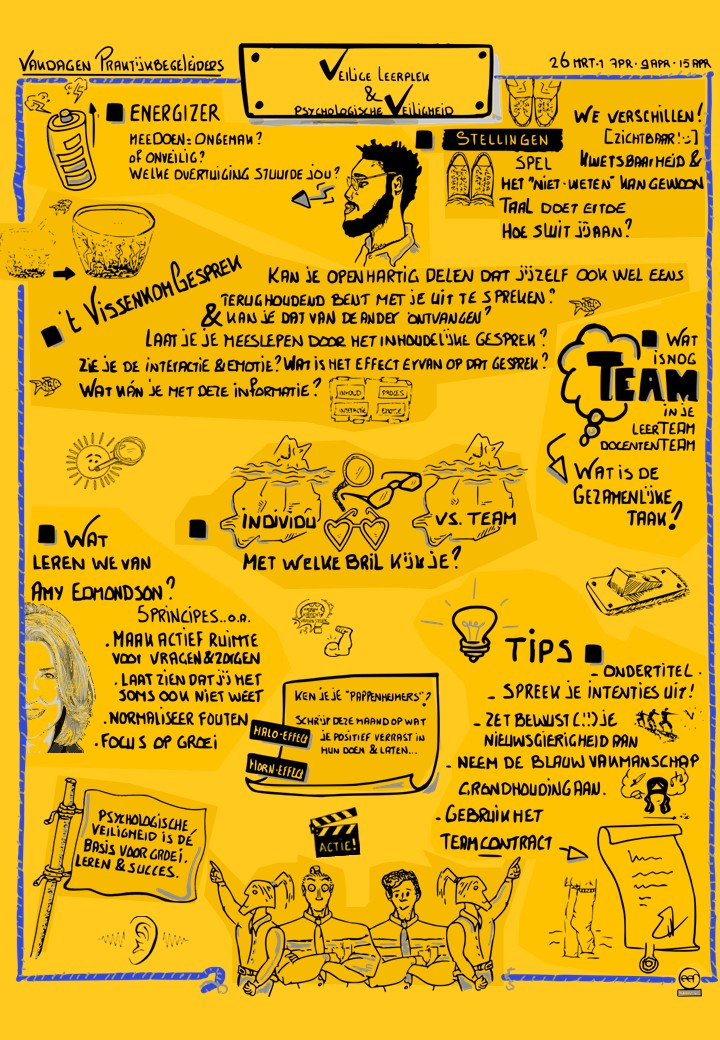 VAKDAGEN PRAKTIJKBEGELEIDERS
VEILIGE LEERPLEK
&
PSYCHOLOGISCHE VEILIGHEID
26 MRT · 1 APR · 9 APR · 15 APR
ENERGIZER
MEEDOEN = ONGEMAK?
OF ONVEILIG?
WELKE OVERTUIGING STUURDE JOU?
STELLINGEN
SPEL
WE VERSCHILLEN!
[ZICHTBAAR! :-)]
KWETSBAARHEID &
HET "NIET-WETEN" KAN GEWOON
TAAL DOET ERTOE
HOE SLUIT JIJ AAN?
'T VISSENKOM GESPREK
KAN JE OPENHARTIG DELEN DAT JIJZELF OOK WEL EENS
TERUGHOUDEND BENT MET JE UIT TE SPREKEN?
& KAN JE DAT VAN DE ANDER ONTVANGEN?
LAAT JE JE MEESLEPEN DOOR HET INHOUDELIJKE GESPREK?
ZIE JE DE INTERACTIE & EMOTIE? WAT IS HET EFFECT ERVAN OP DAT GESPREK?
WAT KÁN JE MET DEZE INFORMATIE?
INHOUD
PROCES
INTERACTIE
EMOTIE
WAT
IS NOG
TEAM
IN JE
LEERTEAM
DOCENTENTEAM
WAT IS DE
GEZAMENLIJKE
TAAK?
INDIVIDU
VS. TEAM
MET WELKE BRIL KIJK JE?
WAT
LEREN WE VAN
AMY EDMONDSON?
5 PRINCIPES.. O.A.
. MAAK ACTIEF RUIMTE
VOOR VRAGEN & ZORGEN
. LAAT ZIEN DAT JIJ HET
SOMS OOK NIET WEET
. NORMALISEER FOUTEN
. FOCUS OP GROEI
KEN JE JE "PAPPENHEIMERS"?
SCHRIJF DEZE MAAND OP WAT
JE POSITIEF VERRAST IN
HUN DOEN & LATEN...
HALO-EFFECT
HORN-EFFECT
TIPS
- ONDERTITEL.
- SPREEK JE INTENTIES UIT!
- ZET BEWUST (!!) JE
NIEUWSGIERIGHEID AAN
- NEEM DE BLAUW VAKMANSCHAP
GRONDHOUDING AAN.
- GEBRUIK HET
TEAMCONTRACT
PSYCHOLOGISCHE
VEILIGHEID IS DÉ
BASIS VOOR GROEI,
LEREN & SUCCES.
ACTIE!